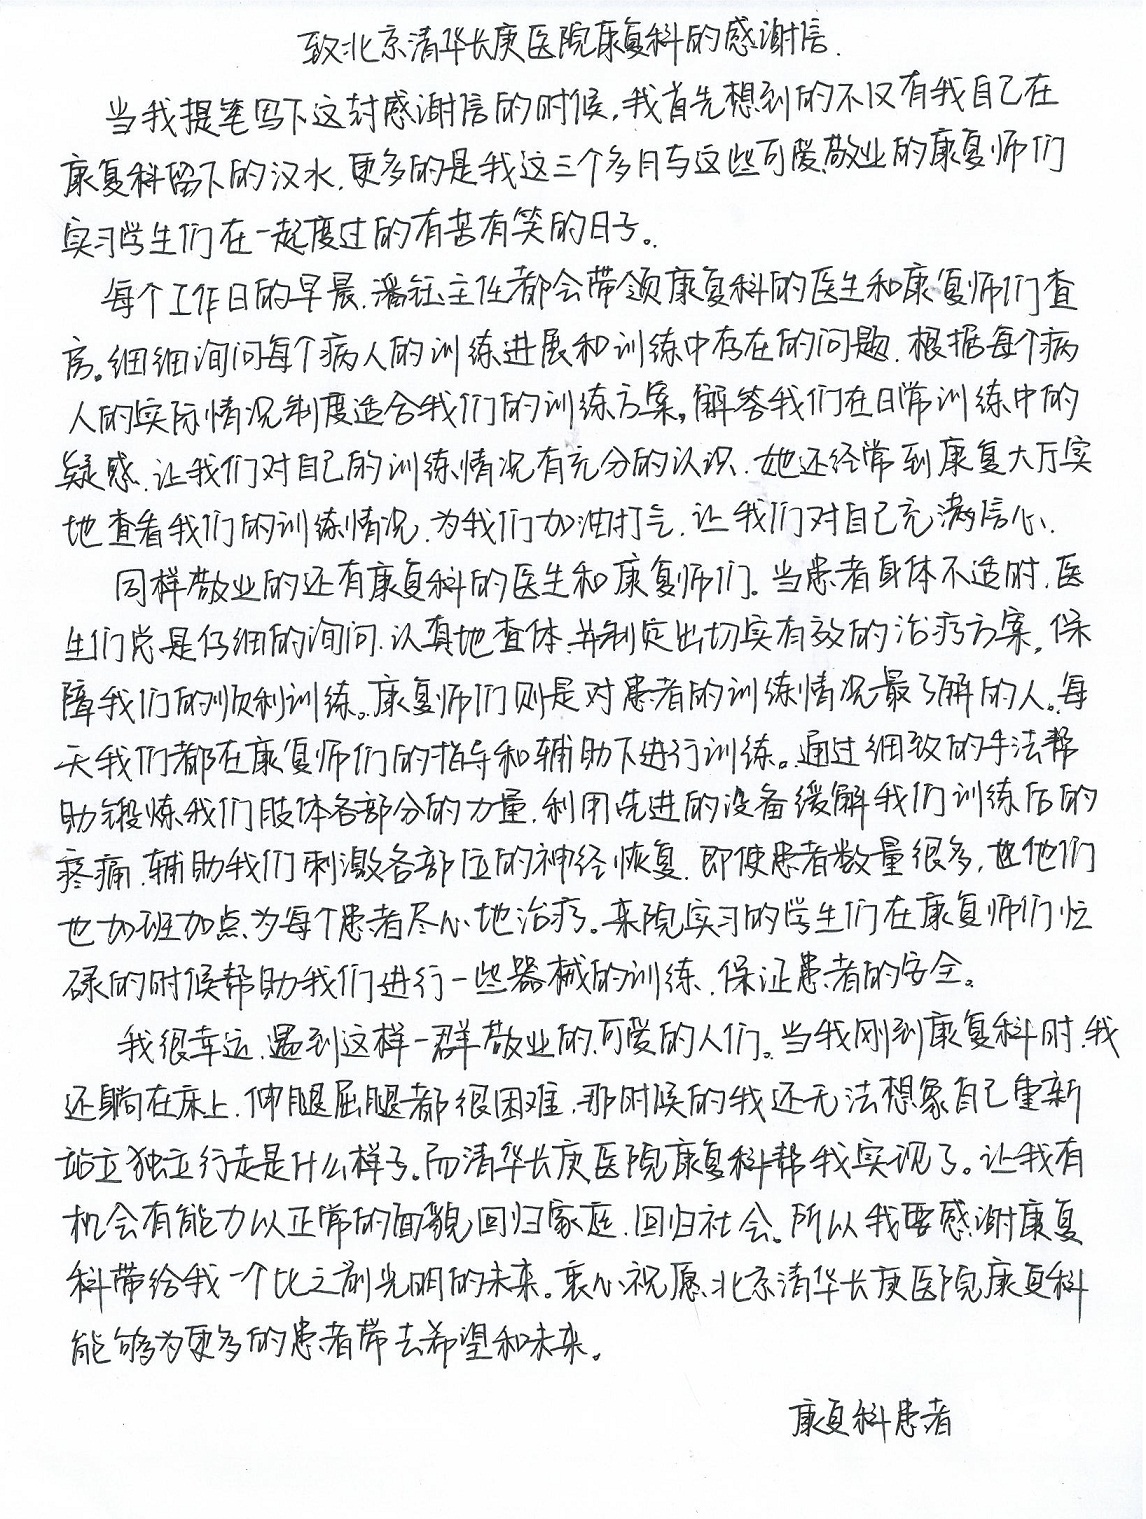 致北京清华长庚医院康复科的感谢信.
当我提笔写下这封感谢信的时候,我首先想到的不仅有我自己在
康复科留下的汉水,更多的是我这三个多月与这些可爱、敬业的康复师们
实习学生们在一起度过的有苦有笑的日子。
每个工作日的早晨,潘钰主任都会带领康复科的医生和康复师们查
房。细细询问每个病人的训练进展和训练中存在的问题,根据每个病
人的实际情况制度适合我们的训练方案,解答我们在日常训练中的
疑惑,让我们对自己的训练情况有充分的认识,她还经常到康复大厅实
地查看我们的训练情况,为我们加油打气,让我们对自己充满信心.
同样敬业的还有康复科的医生和康复师们。当患者身体不适时,医
生们总是仔细的询问,认真地查体,并制定出切实有效的治疗方案,保
障我们的顺利训练。康复师们则是对患者的训练情况最了解的人。每
天我们都在康复师们的指导和辅助下进行训练。通过细致的手法帮
助锻炼我们肢体各部分的力量,利用先进的设备缓解我们训练后的
疼痛,辅助我们刺激各部位的神经恢复,即使患者数量很多,也他们
也加班加点为每个患者尽心地治疗。来院实习的学生们在康复师们忙
碌的时候帮助我们进行一些器械的训练,保证患者的安全。
我很幸运,遇到这样一群敬业的、可爱的人们。当我刚到康复科时,我
还躺在床上,伸腿屈腿都很困难,那时候的我还无法想象自己重新
站立独立行走是什么样子。而清华长庚医院康复科帮我实现了。让我有
机会有能力以正常的面貌回归家庭,回归社会。所以我要感谢康复
科带给我一个比之前光明的未来。衷心祝愿北京清华长庚医院康复科
能够为更多的患者带去希望和未来。
康复科患者